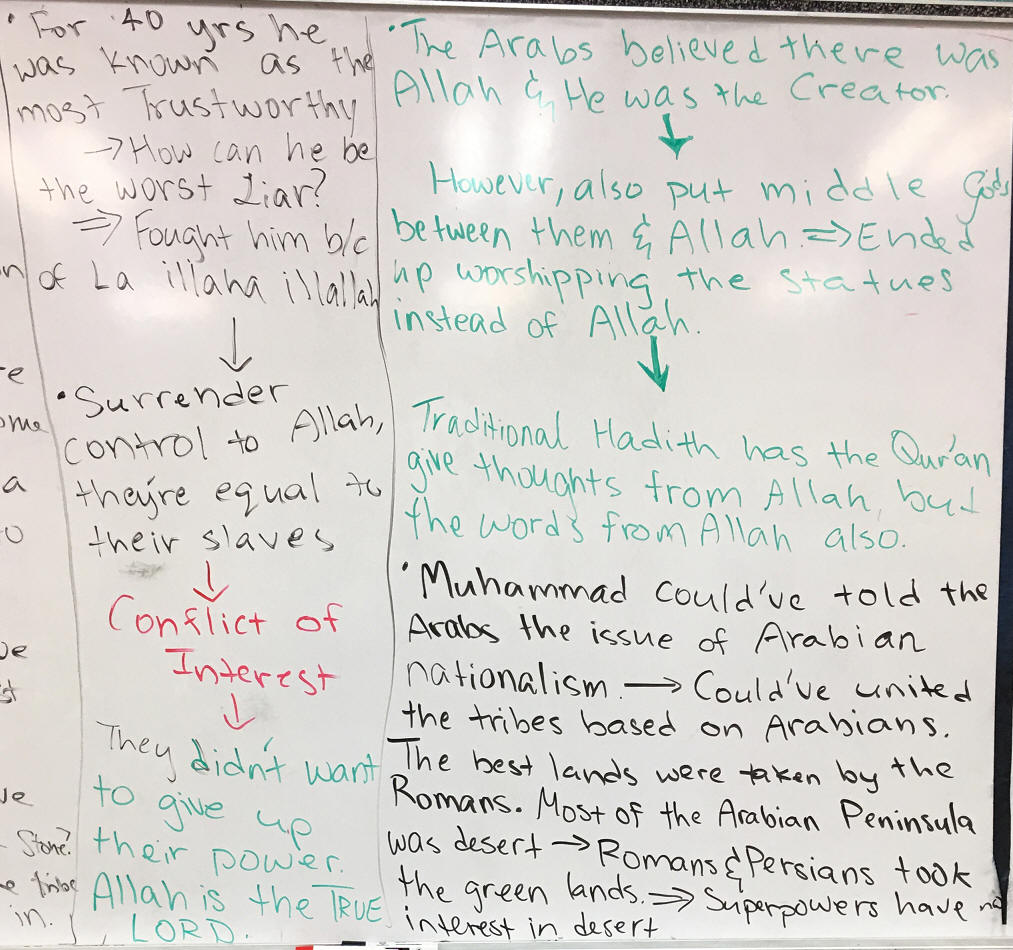 n
e
ome
a
o
ve
st
ve
Stone?
e tribe
in.
• For 40 yrs he
was known as the
most Trustworthy
→ How can he be
the worst Liar?
⇒ Fought him b/c
of La illaha illallah
↓
• Surrender
control to Allah,
they're equal to
their slaves
↓
Conflict of
Interest
↓
They didn't want
to give up
their power.
Allah is the TRUE
LORD.
• The Arabs believed there was
Allah & He was the Creator.
↓
However, also put middle Gods
between them & Allah ⇒ Ended
up worshipping the statues
instead of Allah.
↓
Traditional Hadith has the Qur'an
give thoughts from Allah, but
the words from Allah also.
• Muhammad could've told the
Arabs the issue of Arabian
nationalism. → Could've united
the tribes based on Arabians.
The best lands were taken by the
Romans. Most of the Arabian Peninsula
was desert → Romans & Persians took
the green lands. ⇒ Superpowers have no
interest in desert